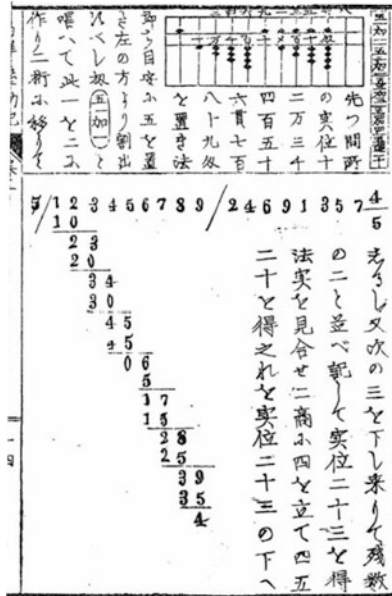 先つ問所
の実位十
二万三千
四百五十
六貫七百
八十九匁
を置き法
即ち目安に五を置
き左の方より割出
すべし扨五加一と
唱へて此一を二に
作り一桁に移りて
5/123456789/24691357 4/5
10
23
20
34
30
45
45
06
5
17
15
28
25
39
35
4
ゑるし又次の三を下し来りて残数
の二と並べ記して実位二十三を得
法実を見合せ二商に四を立て四五
二十と得之れを実位二十三の下へ